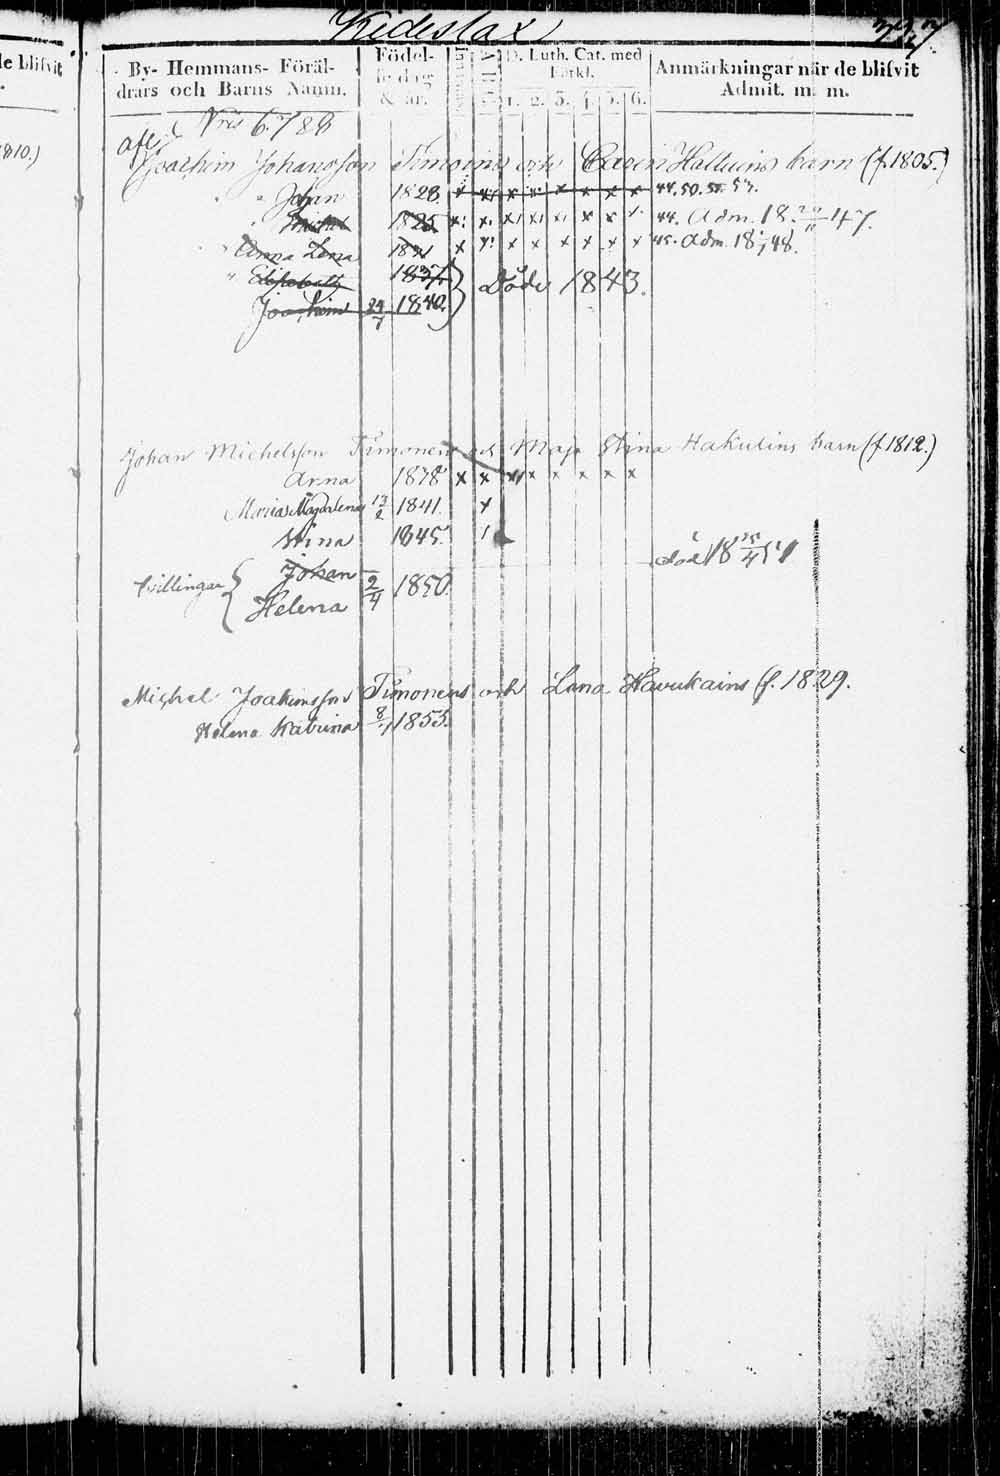 Kideslax 737.
de blifvit
1810.)
By- Hemmans- Föräl-
drars och Barns Namn.
Födel-
se dag
& år.
D. Luth. Cat. med
Förkl.
1. 2. 3. 4. 5. 6.
Anmärkningar när de blifvit
Admit. m. m.
Nris 6. 7 8 &
Joachim Johansson Timoins och Caisa Halluins barn (f. 1805.)
" Johan 1823. x x x x x x x x 44. 50. 52. 53.
" Michel 1825 x x x x x x x 44. Adm. 18 47.
" Anna Lena 1831 x x x x x x x x 45. Adm. 18 48.
" Elisabeth 1837
Döde 1843.
Joachim 24/7 1840.
Johan Michelsson Timonens och Maja Stina Hakulins barn (f. 1812.)
Anna 1838 x x x x x x x x
Maria Magdalena 13/2 1841. x
Stina 1845.
död 18 25/4 51
Tvillingar { Johan
Helena 2/4 1850.
Michel Joakimsson Timonens och Lena Havukains (f. 1829.
Helena Katrina 8/1 1853.